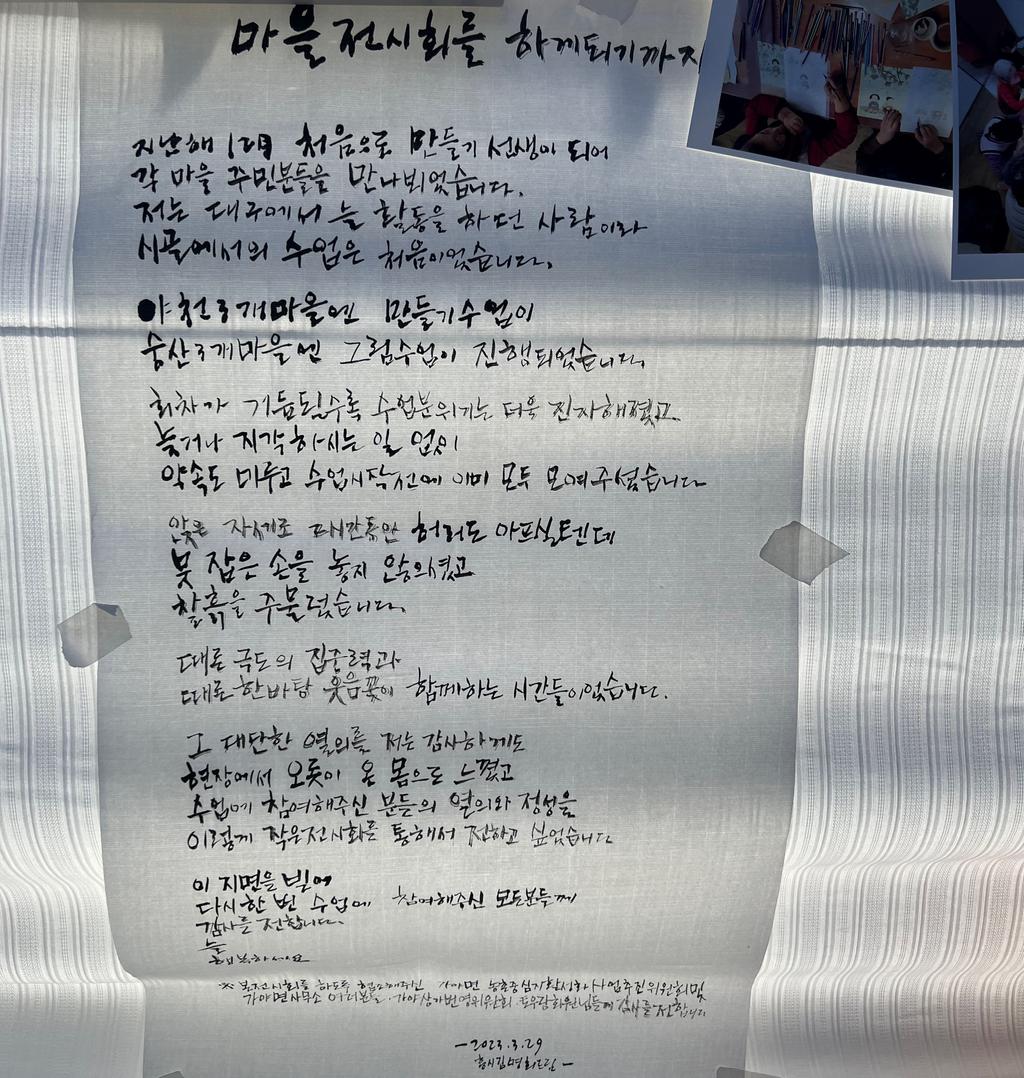 마을전시회를 하게되기까지
지난해 12月 처음으로 만들기 선생이 되어
각 마을 주민분들을 만나뵈었습니다.
저는 대구에서 늘 활동을 하던 사람이라
시골에서의 수업은 처음이었습니다.
야천3개마을엔 만들기수업이
숭산3개마을엔 그림수업이 진행되었습니다.
회차가 거듭될수록 수업분위기는 더욱 진지해졌고
늦거나 지각하시는 일 없이
약속도 미루고 수업시작전에 이미 모두 모여주셨습니다
앉은 자세로 두시간동안 허리도 아프실텐데
붓 잡은 손을 놓지 않으셨고
찰흙을 주물렀습니다.
때로 극도의 집중력과
때로 한바탕 웃음꽃이 함께하는 시간들이었습니다.
그 대단한 열의를 저는 감사하게도
현장에서 오롯이 온 몸으로 느꼈고
수업에 참여해주신 분들의 열의와 정성을
이렇게 작은전시회를 통해서 전하고 싶었습니다
이 지면을 빌어
다시한번 수업에 참여해주신 모든분들께
감사를 전합니다.
늘
행복하세요
※ 본전시회를 하도록 협조해주신 가야면 농촌중심지활성화사업추진위원회 및
가야면사무소 여러분들·가야상가번영위원회 회원님들께 감사를 전합니다
-2023.3.29